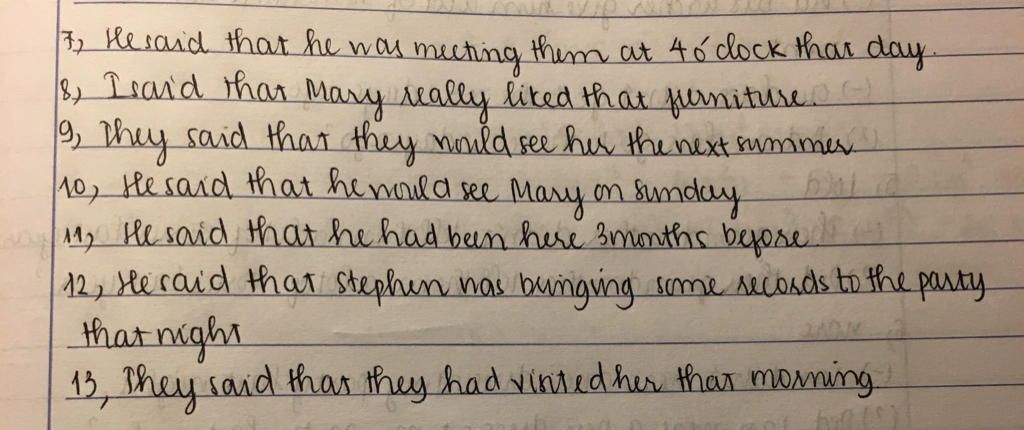 7, He said that he was meeting them at 4 o'clock that day.
8, I said that Mary really liked that furniture.
9, They said that they would see her the next summer
10, He said that he would see Mary on Sunday
11, He said that he had been here 3 months before
12, He said that Stephen was bringing some records to the party
that night
13, They said that they had visited her that morning